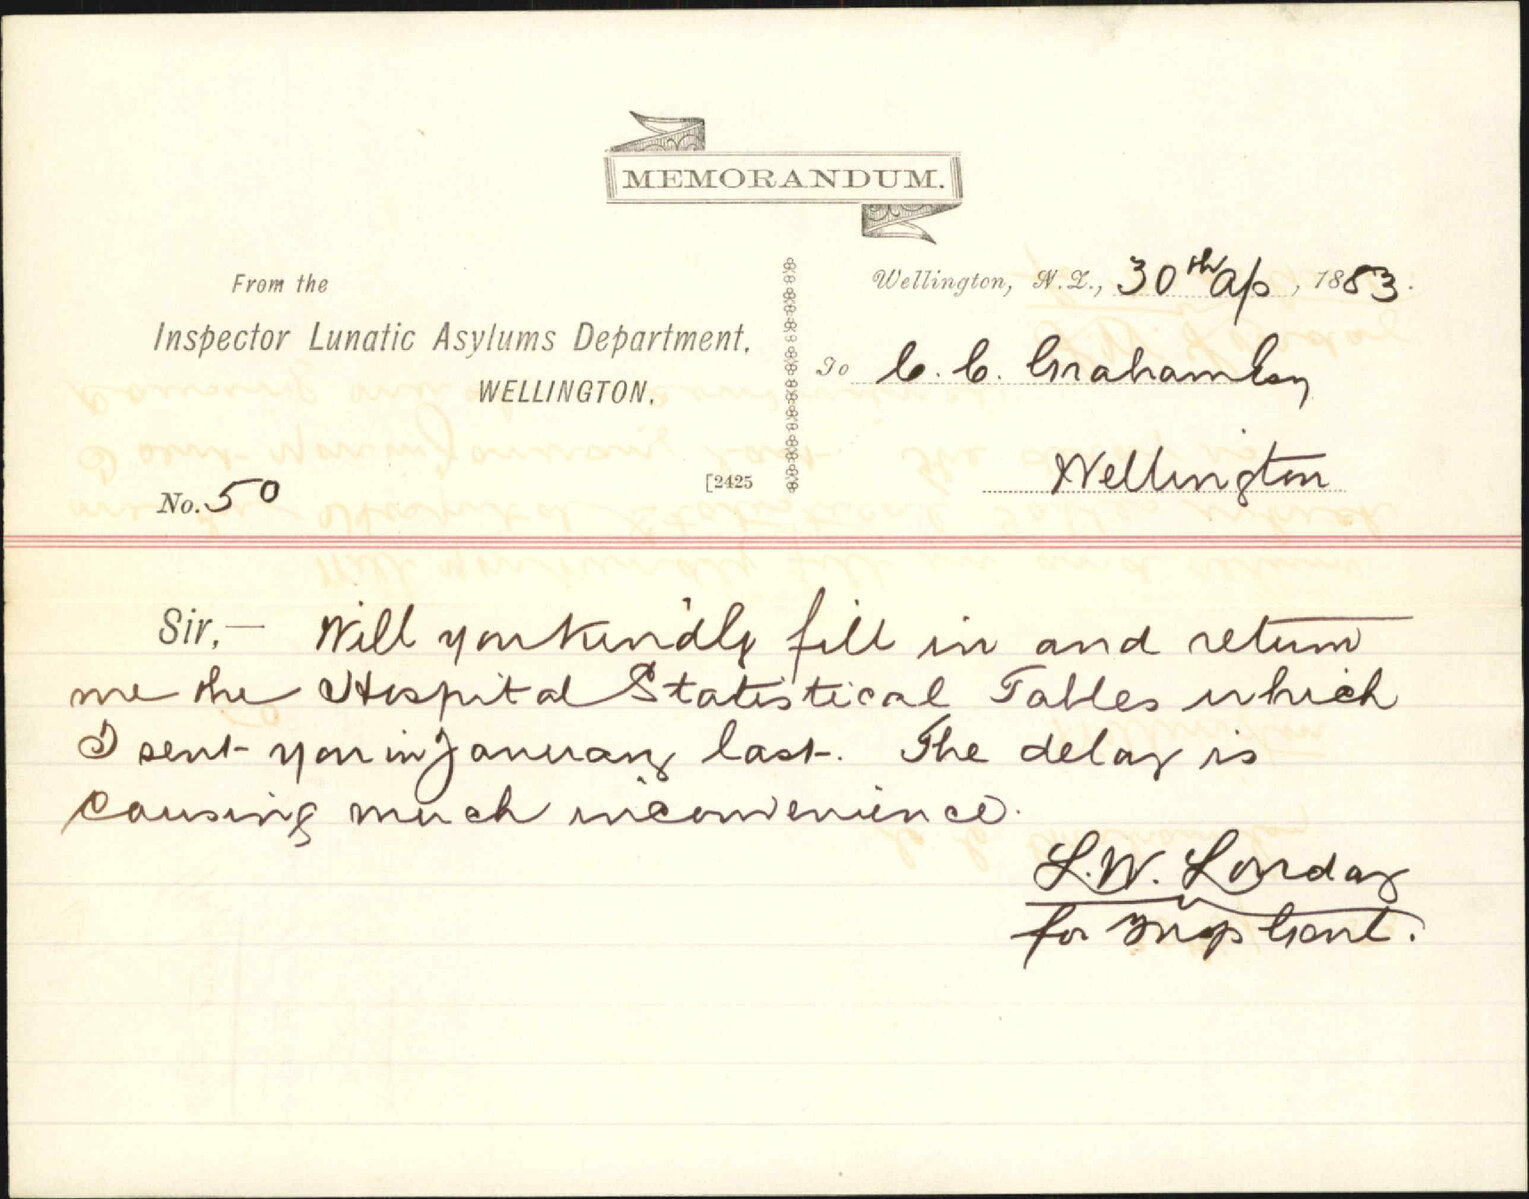 MEMORANDUM.
From the
Inspector Lunatic Asylums Department,
WELLINGTON.
No. 50
[2425
Wellington, N.Z., 30th Ap, 1883.
To C. C. Graham Esq
Wellington
Sir,— Will you kindly fill in and return
me the Hospital Statistical Tables which
I sent you in January last. The delay is
causing much inconvenience.
L.W. Loveday
for Insp Genl.